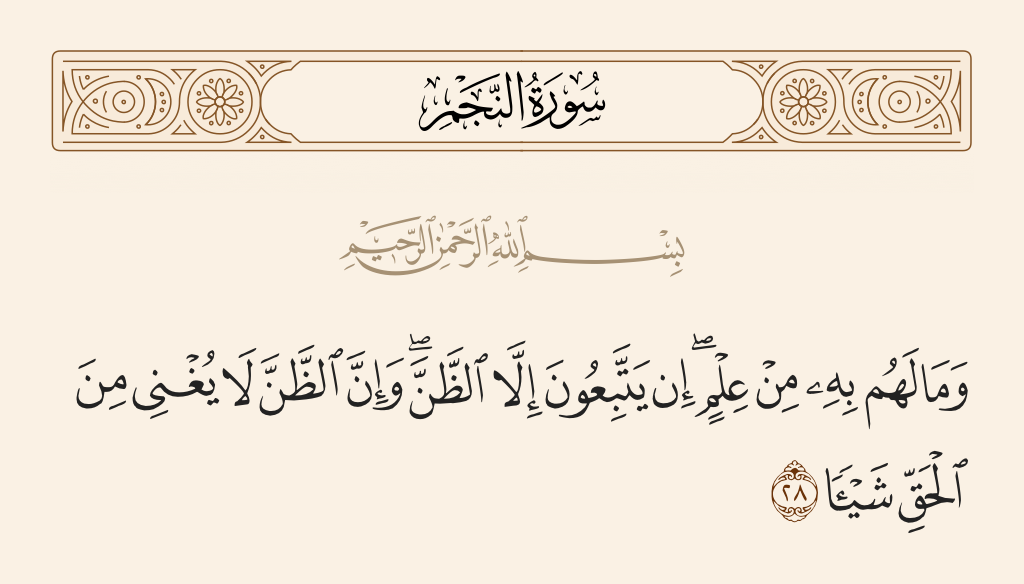 سُورَةُ النَّجْمِ
بِسْمِ ٱللَّهِ ٱلرَّحْمَٰنِ ٱلرَّحِيمِ
وَمَا لَهُم بِهِۦ مِنْ عِلْمٍ ۖ إِن يَتَّبِعُونَ إِلَّا ٱلظَّنَّ ۖ وَإِنَّ ٱلظَّنَّ لَا يُغْنِى مِنَ
ٱلْحَقِّ شَيْـًٔا ٢٨